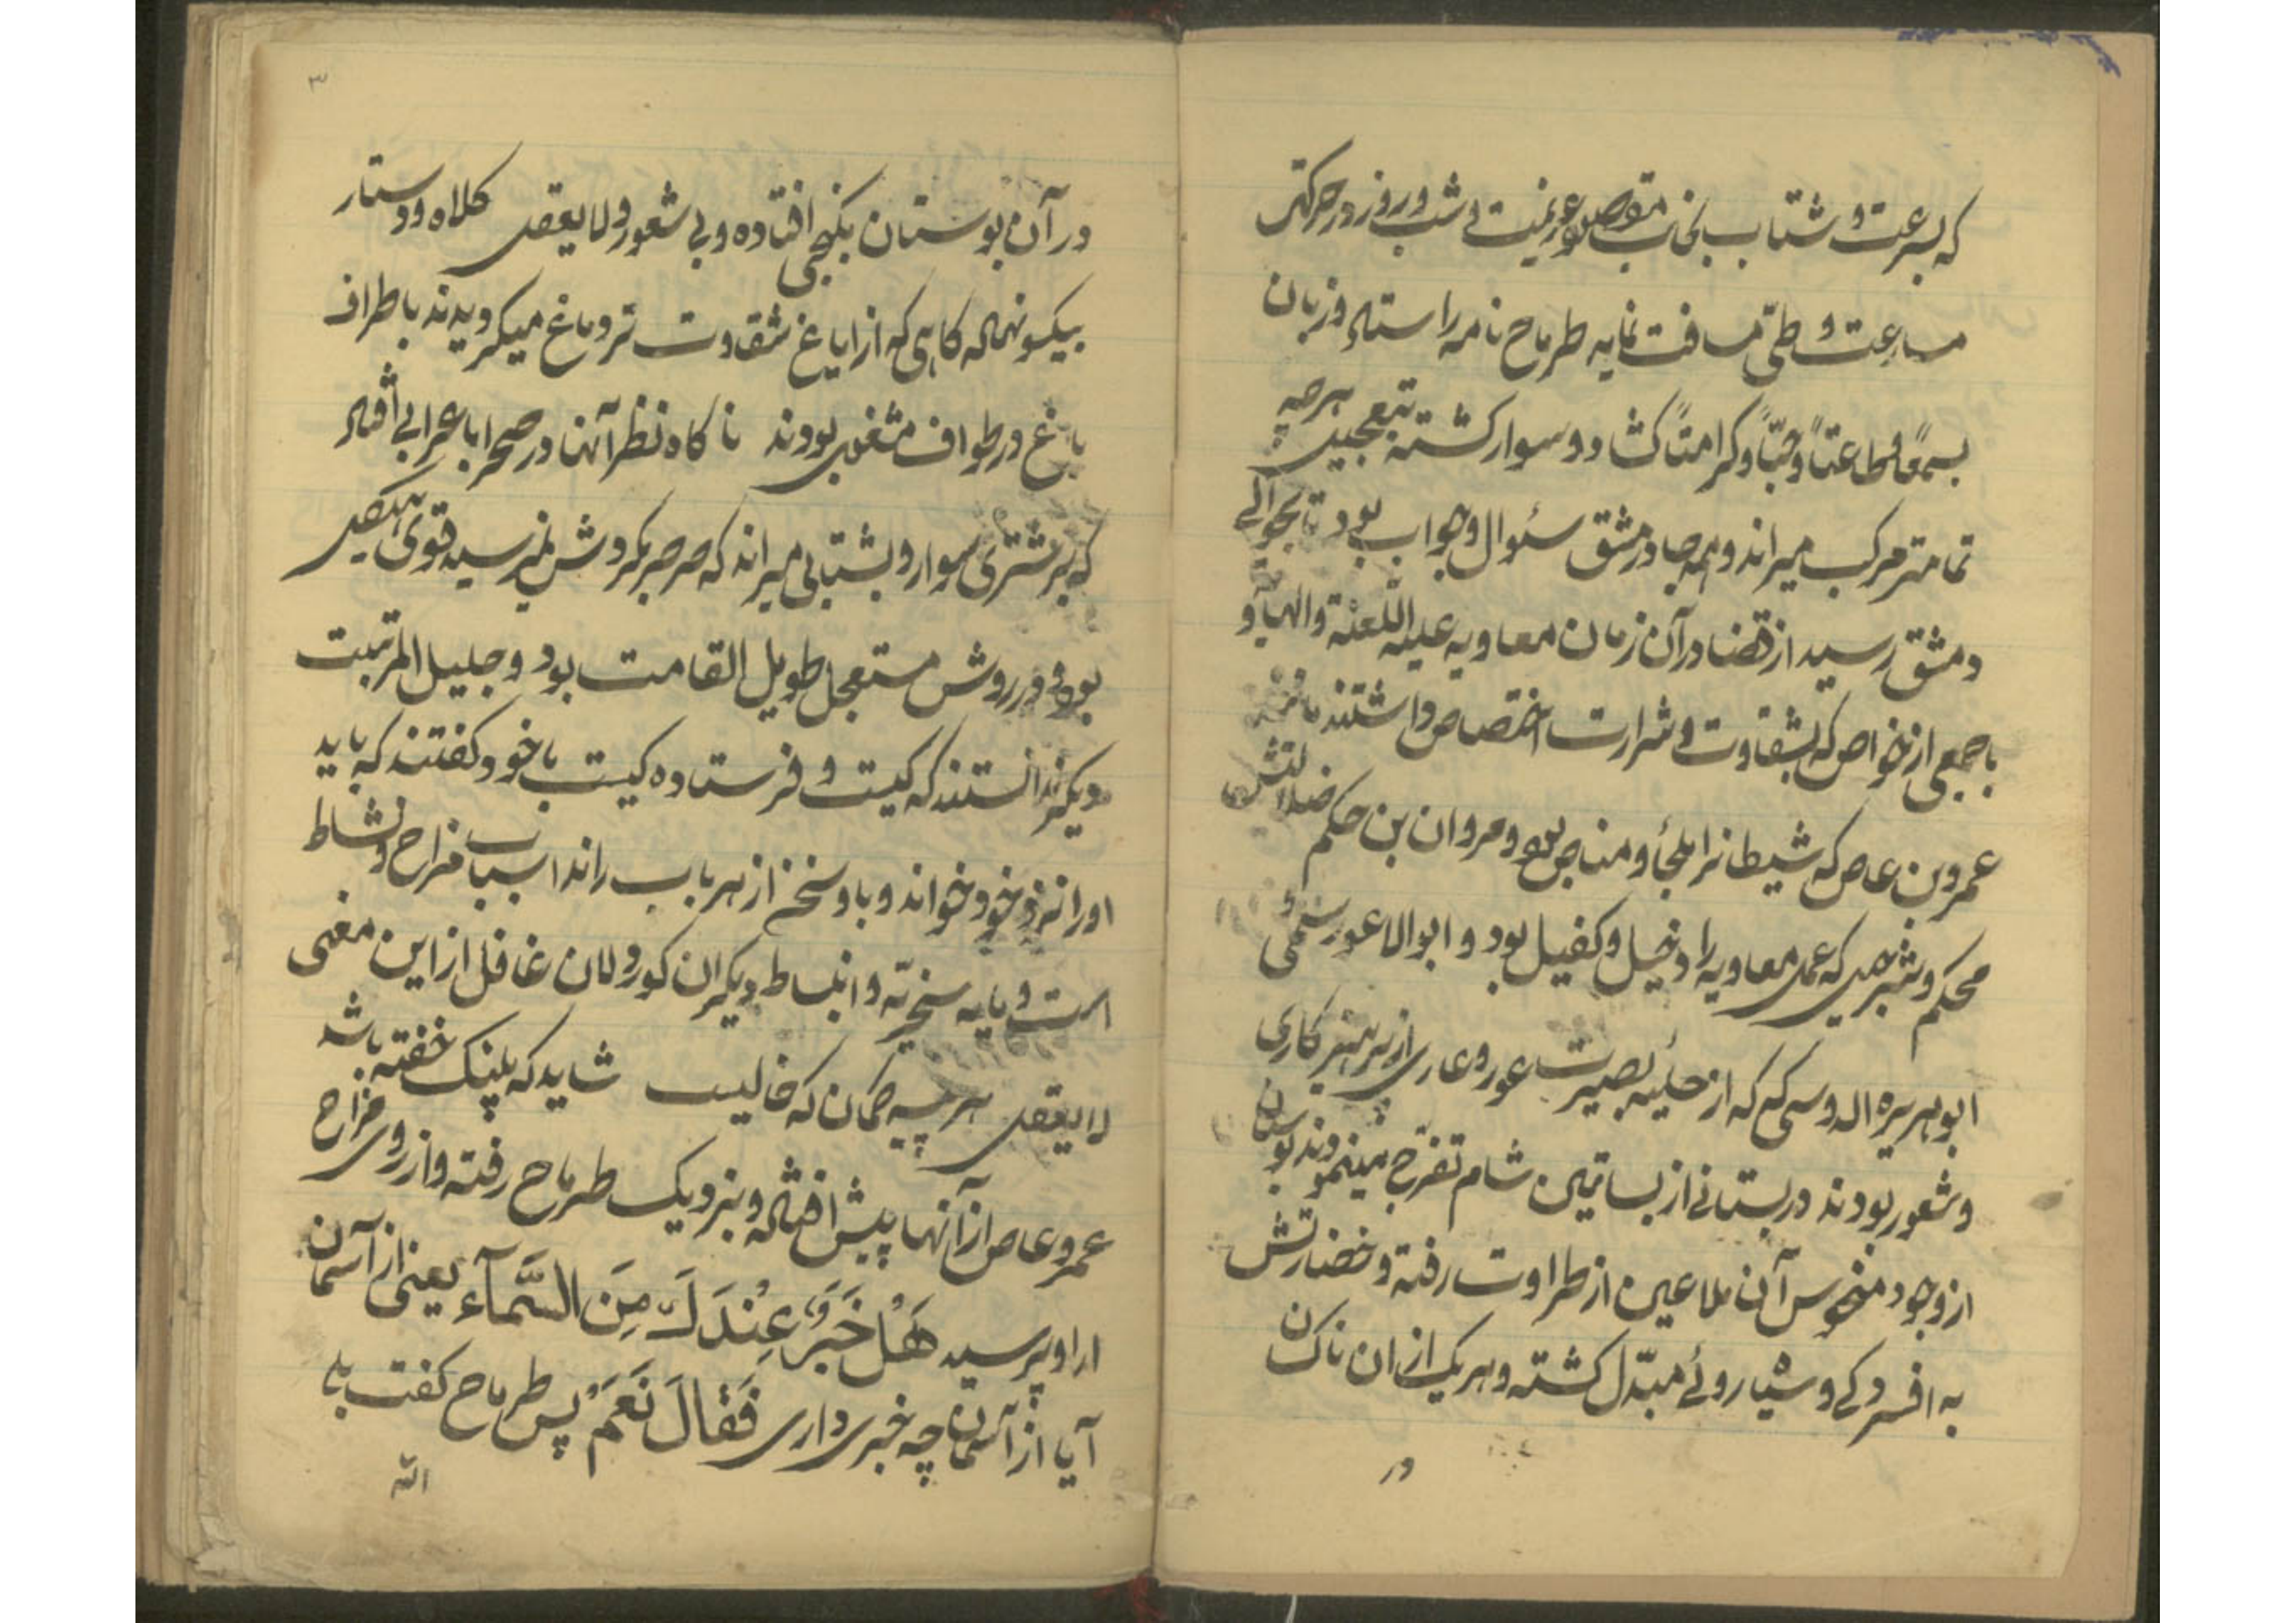 که بسرعت و شتاب بجانب مقصود عزیمت و شب و روز در حرکت
مسارعت و طیّ مسافت نماید طرماح نامه را ستاد و زبان
بسمعًا و طاعتاً و حبّاً و کرامتاً کشاد و سوار کشته بتعجیل هر چه
تمامتر مرکب میراند و همه جا در مشق سئوال و جواب بود تا بحوالی
دمشق رسید از قضا در آن زمان معاویه علیه اللّعنة والهاویه
با جمعی از خواص که بشقاوت و شرارت اختصاص داشتند مانند
عمروبن عاص که شیطانرا ملجأ و مناص بود و مروان بن حکم ضلالتش
محکم و شرحبیل که عمل معاویه را دخیل و کفیل بود و ابوالاعور سلمی
ابوهریره الدوسی که از حلیه بصیرت عور و عاری از پرهیزکاری
و شعور بودند در بستانی از بساتین شام تفرّج مینمودند بوستان
از وجود منحوس آن ملاعین از طراوت رفته و خضارتش
به افسردکی و سیاروئی مبدّل کشته و هر یک از ان ناکسان
در
۳
در آن بوستان بکنجی افتاده و بی شعور و لا یعقل کلاه و دستار
بیکسو نهاده کاهی که از ایاغ شقاوت تر دماغ میکردیدند باطراف
باغ در طواف مشغول بودند ناکاه نظر آنها در صحرا باعرابی افتاد
که بر شتری سوار و بشتابی میراند که صرصر بکردش نمیرسید قوی هیکل
بود و در روش مستعجل طویل القامت بود و جلیل المرتبت
دیکر ندانستند که کیست و فرستاده کیست با خود کفتند که باید
اورا نزد خود خواند و باو سخن از هر باب راند اسباب مزاح و نشاط
است و مایه سخریّه و انبساط دیکران کوردلان غافل از این معنی
لا یعقل هر بیشه کمان که خالیست شاید که پلنک خفته باشد
عمرو عاص از آنها پیش افتاده و بنزدیک طرماح رفته و از روی مزاح
ار او پرسید هَلْ خَبَرٌ عِنْدَكَ مِنَ السَّمآءِ یعنی از آسمان
آیا از آسمان چه خبری داری فَقالَ نَعَمْ پس طرماح کفت بلی
الله